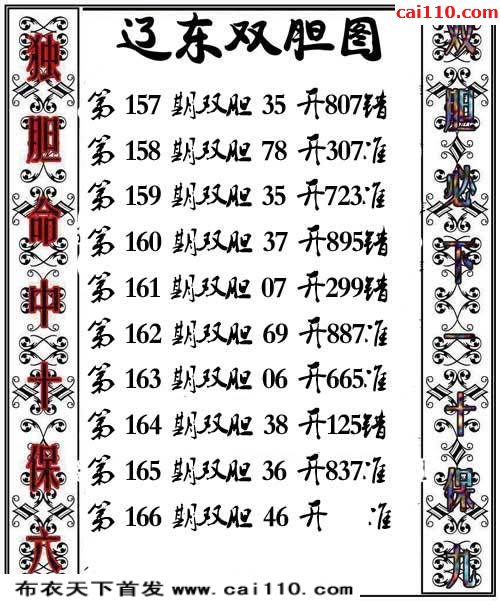 cai110.com
辽东双胆图
独胆命中十保六
双胆必下一十保九
第 157 期双胆 35 开807错
第 158 期双胆 78 开307准
第 159 期双胆 35 开723准
第 160 期双胆 37 开895错
第 161 期双胆 07 开299错
第 162 期双胆 69 开887准
第 163 期双胆 06 开665准
第 164 期双胆 38 开125错
第 165 期双胆 36 开837准
第 166 期双胆 46 开 准
布衣天下首发 www.cai110.com